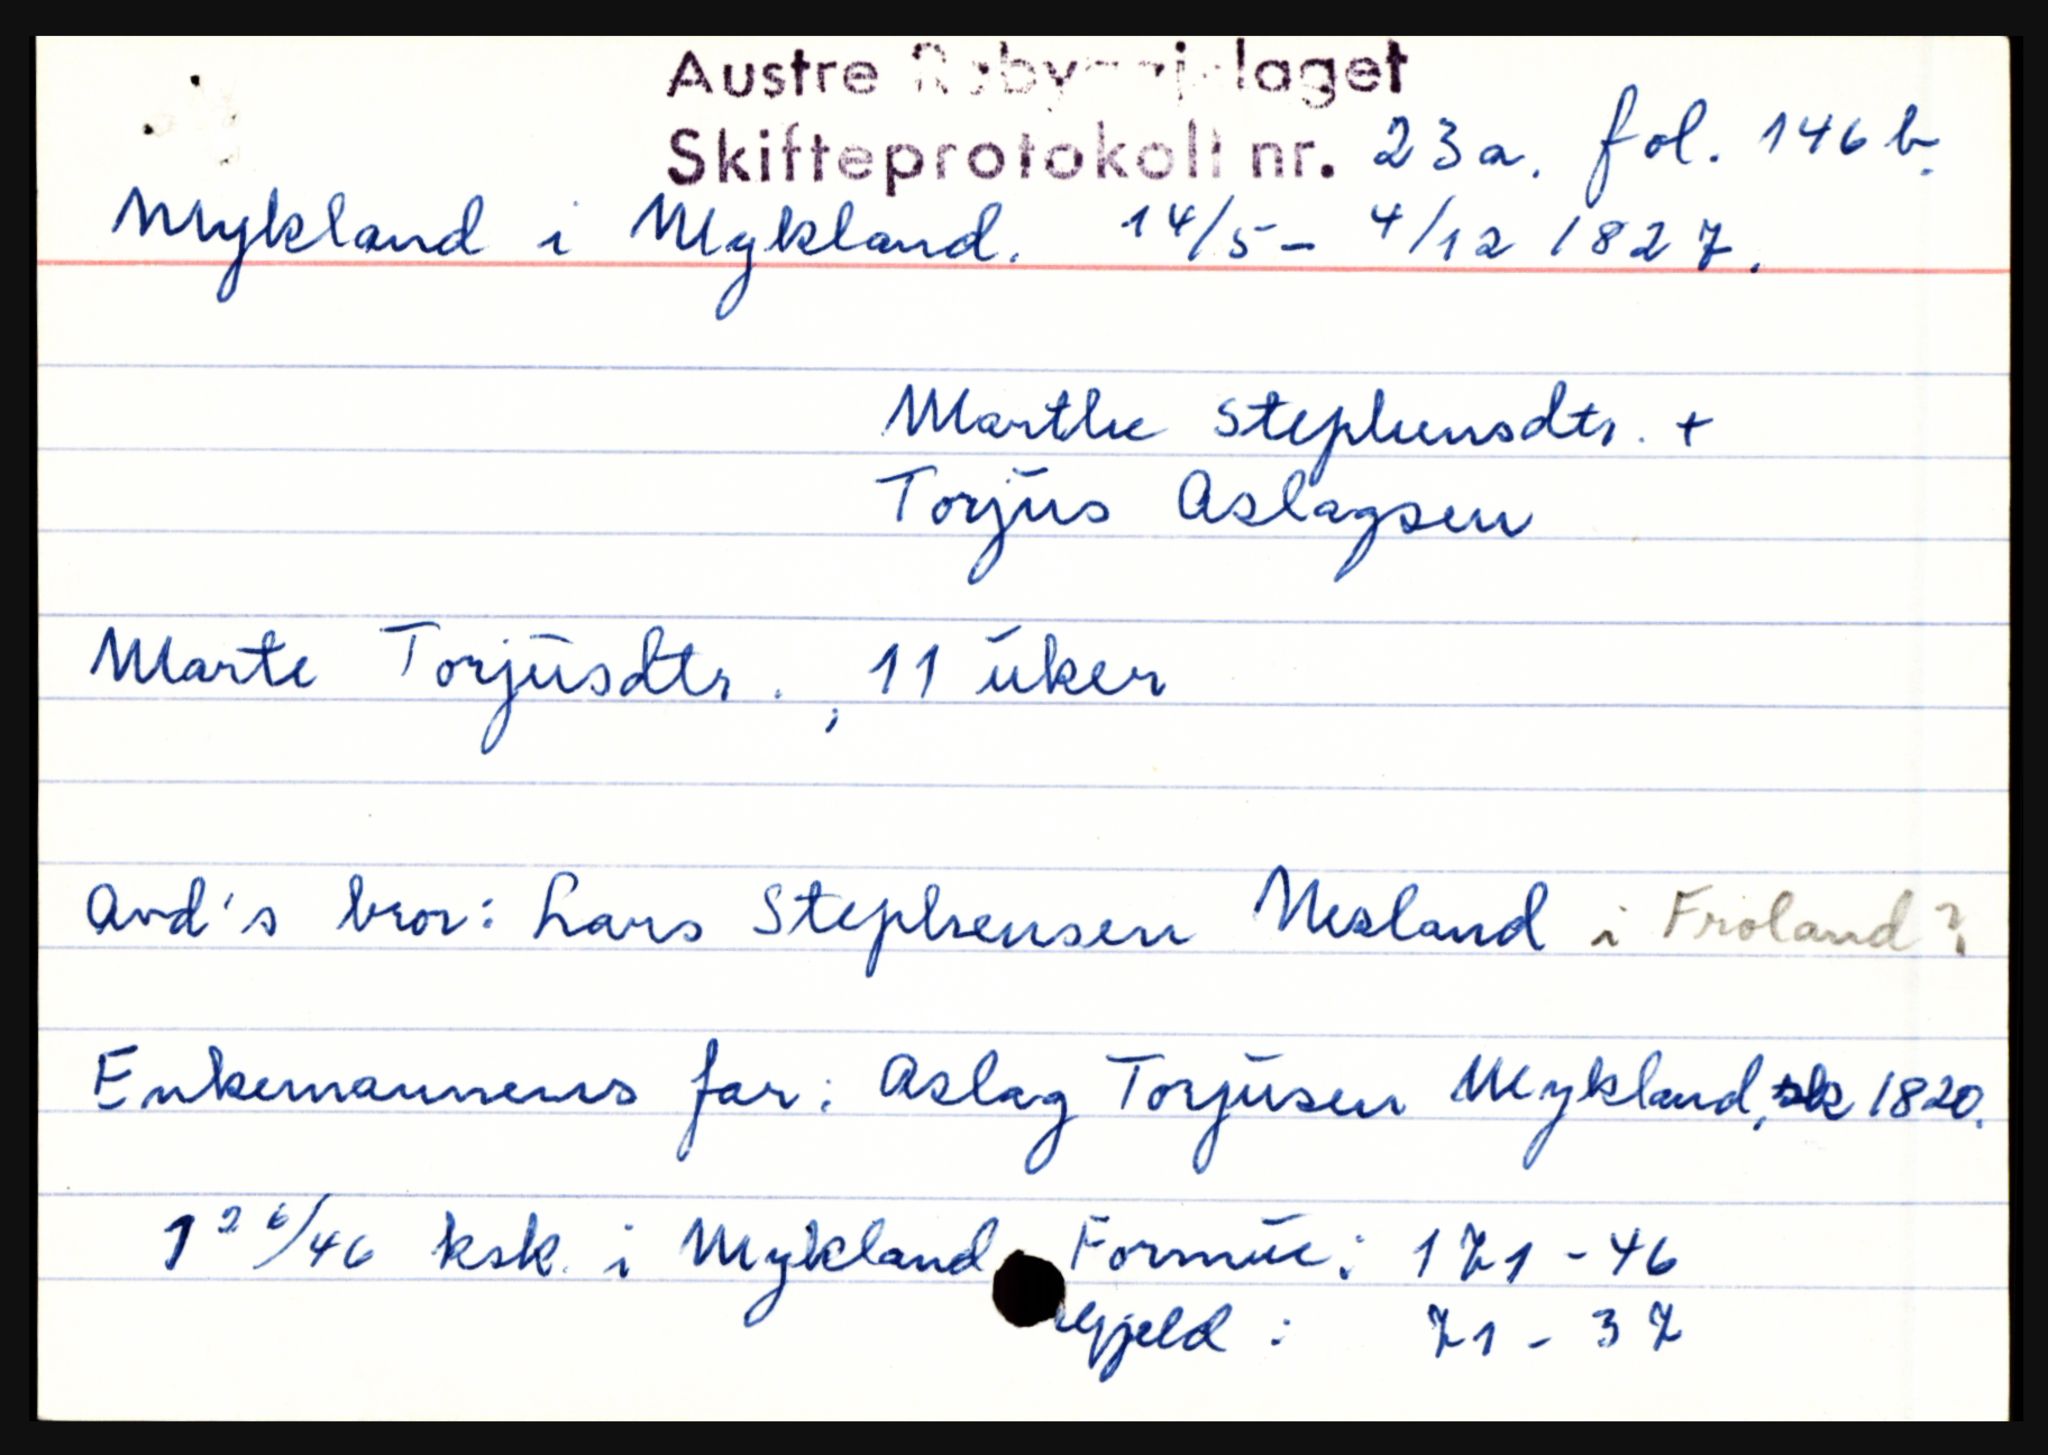 Austre Råbyggjelaget
Skifteprotokoll nr. 23a. fol. 146b.
Mykland i Mykland. 14/5 - 4/12 1827.
Marthe Stephensdtr. +
Torjus Aslagsen
Marte Torjusdtr., 11 uker
Avd's bror: Lars Stephensen Nesland i Froland?
Enkemannens far: Aslag Torjusen Mykland, sk 1820.
1 26/46 ksk. i Mykland Formue: 171 - 46
Gjeld: 71 - 37